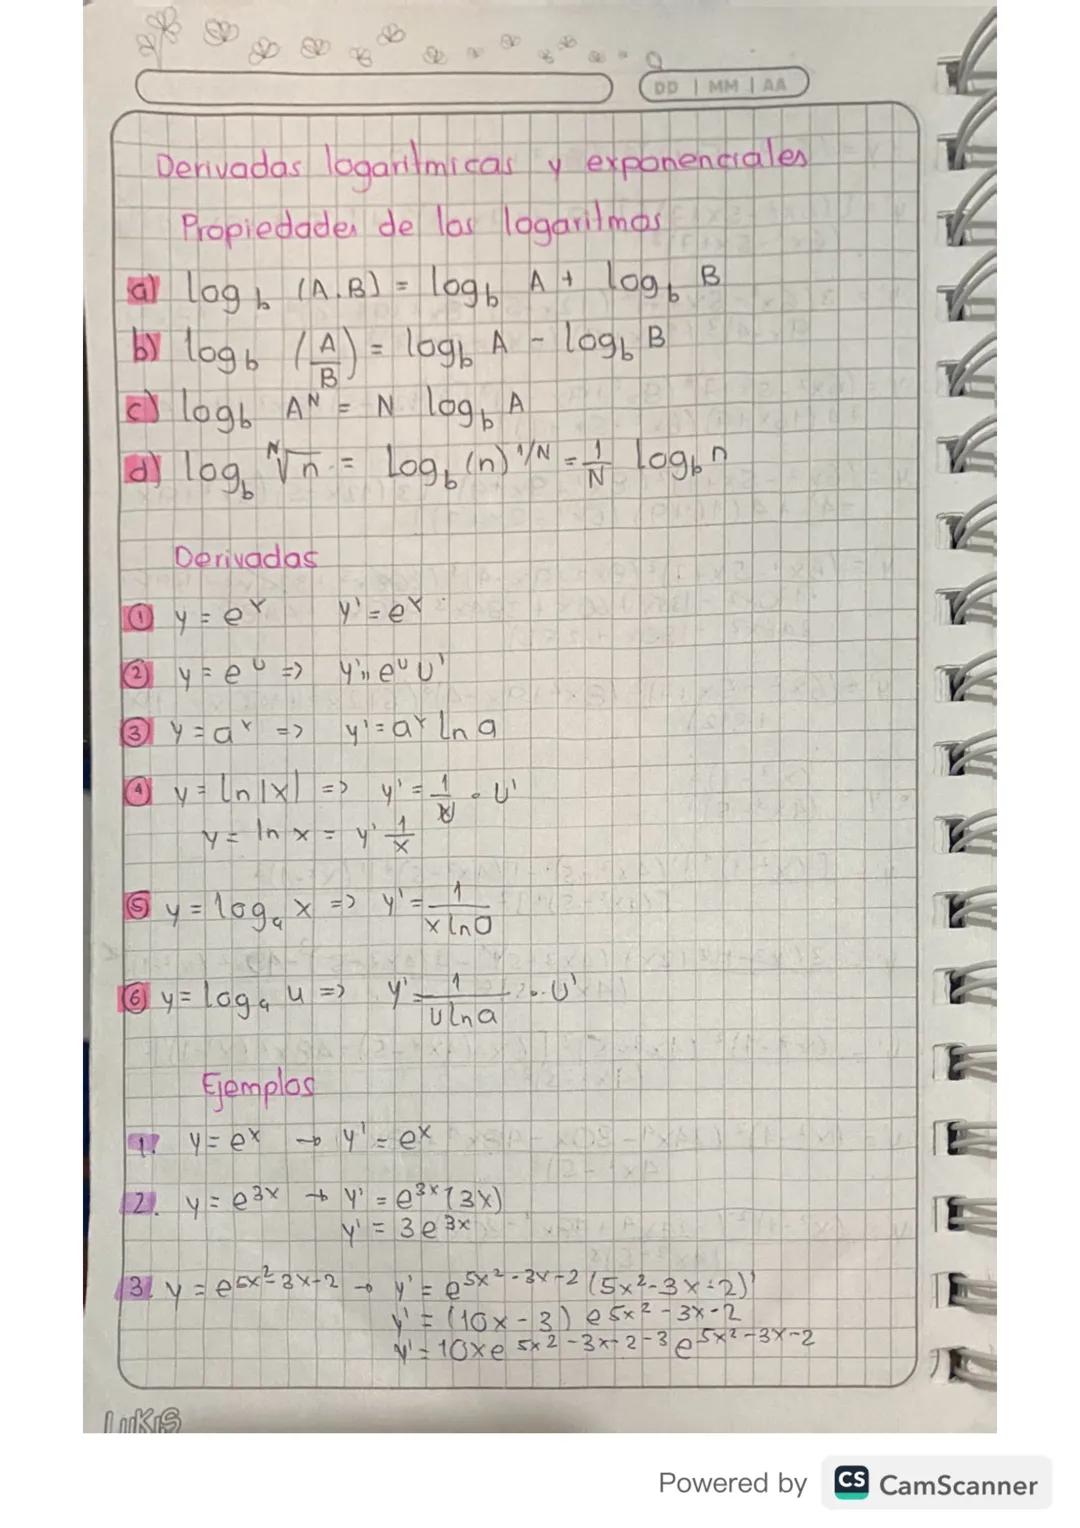 DD | MM | AA
Derivadas logarítmicas y exponenciales
Propiedades de los logaritmos
a) log_b (A.B) = log_b A + log_b B
b) log_b (A/B) = log_b A - log_b B
c) log_b A^N = N log_b A
d) log_b ᴺ√n = Log_b (n)^1/N = 1/N log_b n
Derivadas
① y = e^x y' = e^x
② y = e^u => y' = e^u U'
③ y = a^x => y' = a^x ln a
④ y = ln |x| => y' = 1/x • U'
y = ln x = y' 1/x
⑤ y = log_a x => y' = 1/x ln a
⑥ y = log_a u => y' = 1/U ln a • U'
Ejemplos
1. y = e^x → y' = e^x
2. y = e^3x → y' = e^3x (3x)
y' = 3e^3x
3. y = e^5x²-3x-2 → y' = e^5x²-3x-2 (5x²-3x-2)'
y' = (10x-3) e^5x²-3x-2
y' = 10xe^5x²-3x-2 -3e^5x²-3x-2
LUKIS
Powered by CS CamScanner